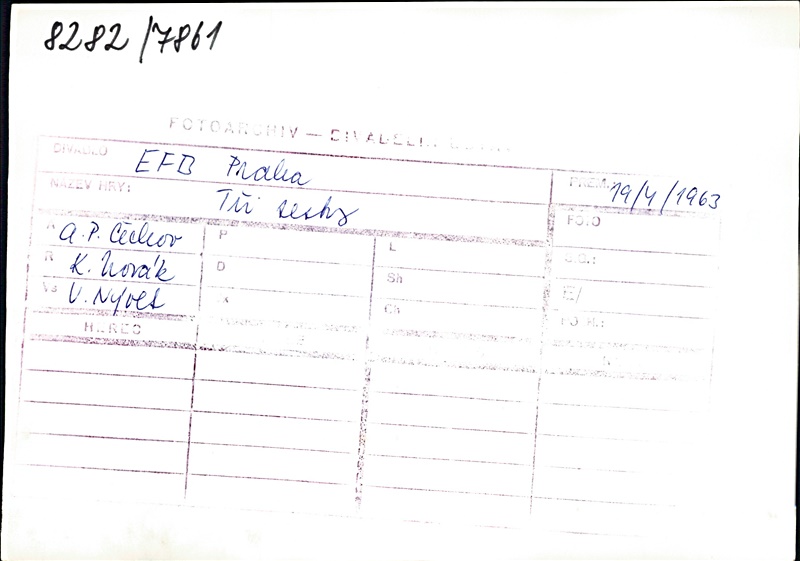 8282/7861
FOTOARCHIV — DIVADELNÍ
DIVADLO EFB Praha PREM. 19/4/1963
NÁZEV HRY: Tři sestry FOTO
A A. P. Čechov P L
R K. Novák D Sh
Vs V. Nývlt Ch
HEREC